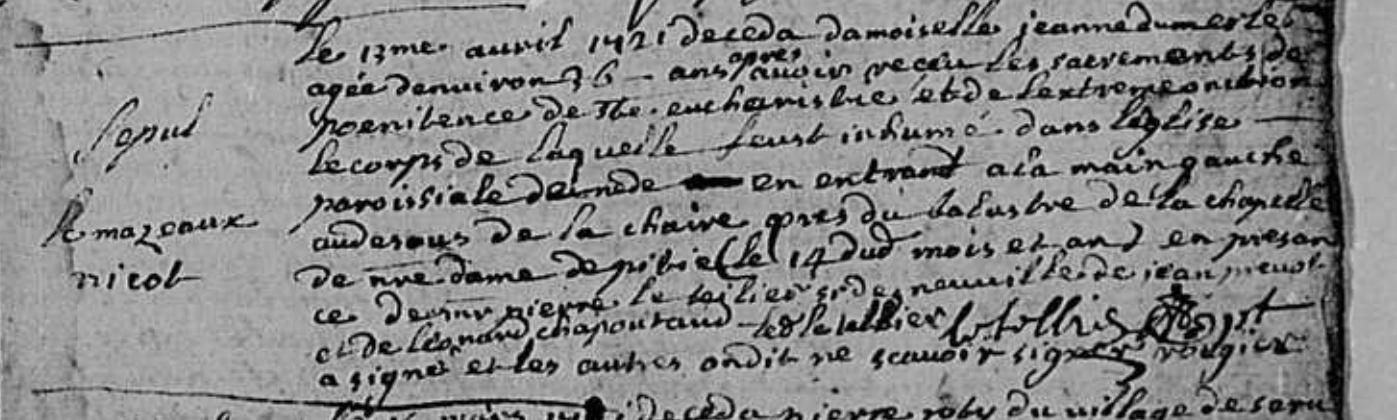 le 13me. avril 1721 deceda damoiselle jeanne dumesle
agée denviron 36 – ans apres avoir receu les sacrements de
poenitence de Ste. eucharistie et de lextreme onction
Sepul
le corps de laquelle feust inhumé. dans leglise
paroissiale de en entrant a la main gauche
le mazeaux
audesous de la chaire pres du balustre de la chapelle
nicot
de nre. dame de pitie le 14 dud mois et an en presan
ce de pierre le teilier sr de neuville de jean
et de léonard chapoutaud led le tellier letellier
a signé et les autres ondit ne scavoir signer rougier
deceda pierre roby du village de